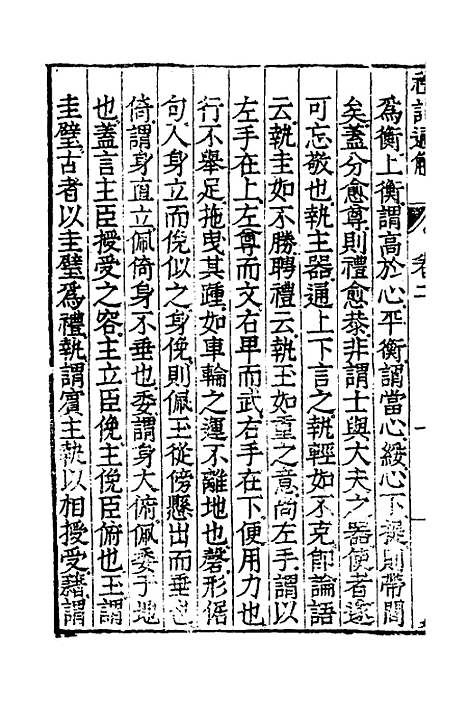 禮記通解 卷二
爲衡上衡謂高於心平衡謂當心綏心下提則帶間
矣蓋分愈尊則禮愈恭非謂士與大夫之器使者遂
可忘敬也執主器通上下言之執輕如不克卽論語
云執圭如不勝聘禮云執玉如重之意尚左手謂以
左手在上左尊而文右卑而武右手在下便用力也
行不舉足拖曳其踵如車輪之運不離地也磬形倨
句人身立而俛似之身俛則佩玉從傍懸出而垂也
倚謂身直立佩倚身不垂也委謂身大俯佩委于地
也蓋言主臣授受之容主立臣俛主俛臣俯也玉謂
圭璧古者以圭璧爲禮執謂賓主執以相授受藉謂